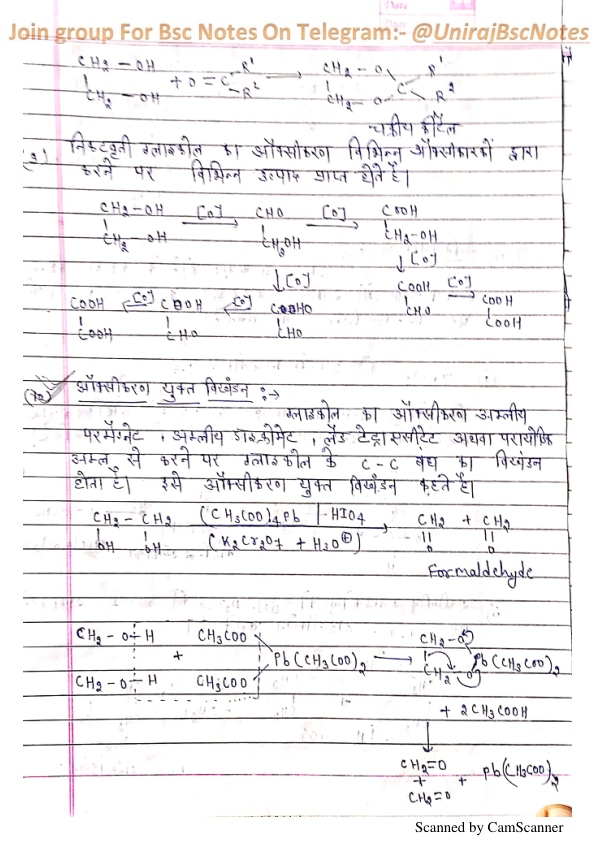 Join group For Bsc Notes On Telegram:- @UnirajBscNotes
Date
CH2 — OH R' CH2 — O R'
+ O = C → C
CH2 — OH R2 CH2 — O R2
चक्रीय कीटैल
निकटवृती ग्लाइकोल का ऑक्सीकरण विभिन्न ऑक्सीकारकों द्वारा
करने पर विभिन्न उत्पाद प्राप्त होते है।
CH2-OH [O] → CHO [O] → COOH
CH2-OH CH2OH CH2-OH
↓[O] ↓[O]
COOH [O] →
COOH
CHO COOH
COOH ←[O] COOH ←[O]
COOH CHO CHO
ऑक्सीकरण युक्त विखंडन :→
ग्लाइकोल का ऑक्सीकरण अम्लीय
परमैंग्नेट , अम्लीय डाइक्रोमेट , लैड टेट्राएसीटेट अथवा
अम्ल से करने पर ग्लाइकोल के C-C बंध का विखंडन
होता है। इसे ऑक्सीकरण युक्त विखंडन कहते है।
CH2 - CH2 (CH3COO)4Pb | HIO4 → CH2 + CH2
OH OH (K2Cr2O7 + H3O⊕) O O
Formaldehyde
CH2 - O-H CH3COO CH2-O
+ Pb(CH3COO)2 → Pb(CH3COO)2
CH2 - O-H CH3COO CH2-O
+ 2CH3COOH
↓
CH2=O
+ + Pb(CH3COO)2
CH2=O
Scanned by CamScanner